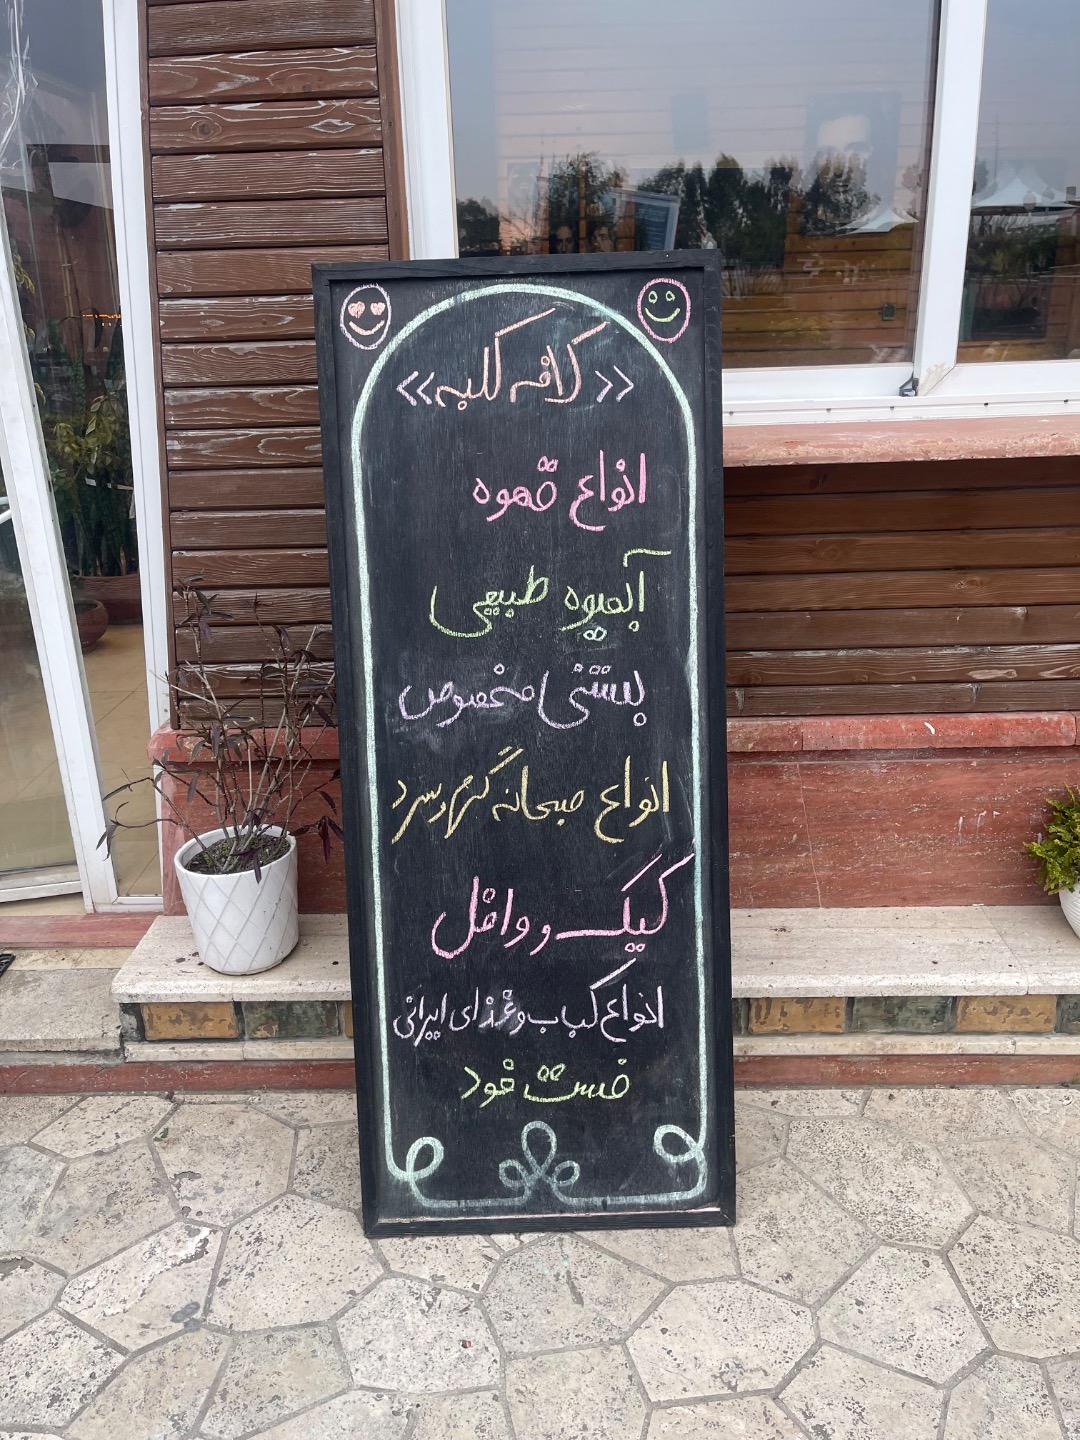 «کافه کلبه»
انواع قهوه
آبمیوه طبیعی
بستنی مخصوص
انواع صبحانه گرم و سرد
کیک و وافل
انواع کباب و غذای ایرانی
فست فود